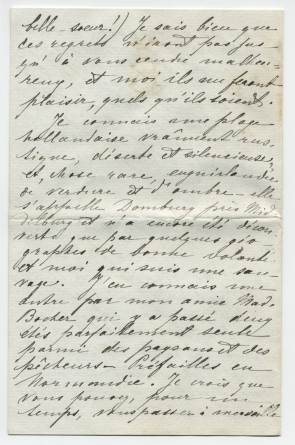 belle-soeur!) Je sais bien que
ces regrets n'iront pas jus
qu'à vous rendre malheu-
reux, et moi ils me feront
plaisir, quels qu'ils soient.
Je connais une plage
hollandaise vraiment rus
tique, déserte et silencieuse,
et, chose rare, enguirlandée
de verdure et d'ombre - elle
s'appelle Domburg près Mid
delburg et n'a encore été décou
verte que par quelques géo
graphes de bonne volonté
et moi qui suis une sau
vage. J'en connais une
autre par mon amie Mad.
Bocher qui y a passé deux
étés parfaitement seule
parmi des paysans et des
pêcheurs - Préfailles en
Normandie. Je crois que
vous pouvez, pour un
temps, vous passer à merveille